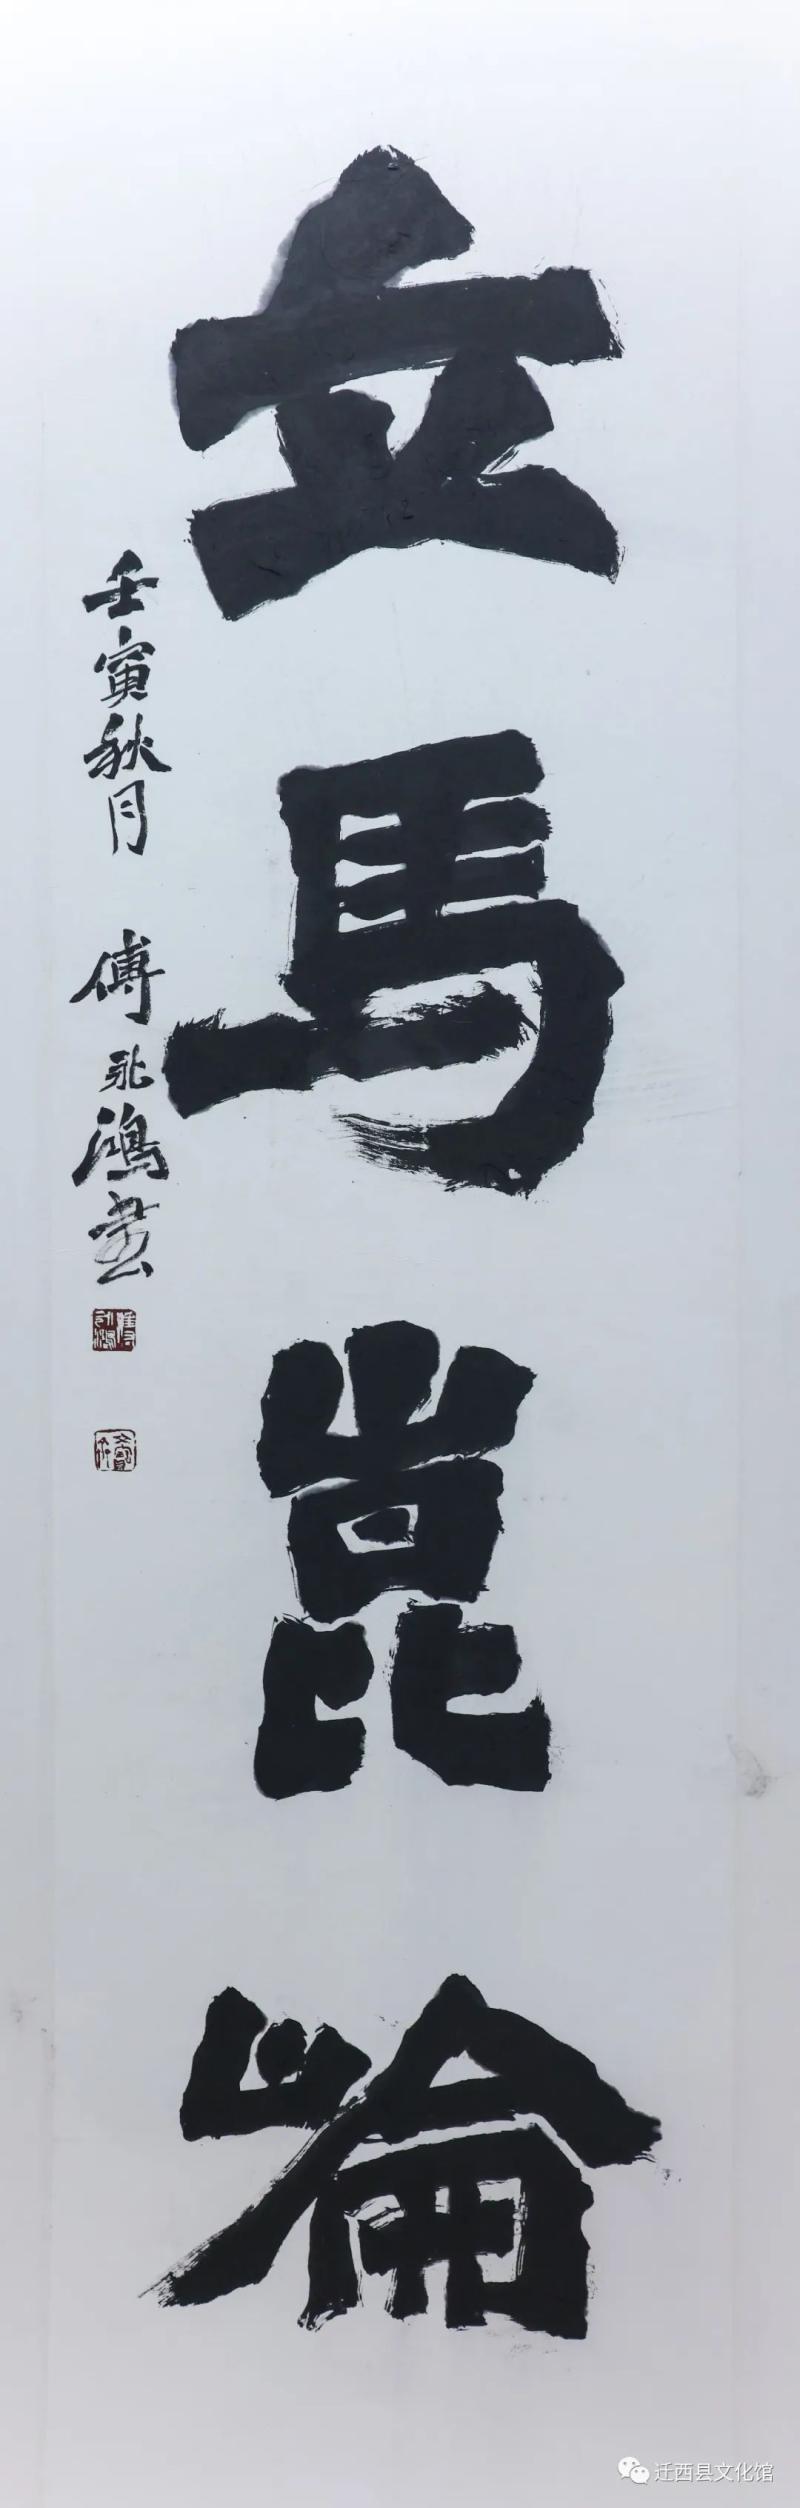 立馬崑崘
壬寅秋月 傅鴻書
迁西县文化馆